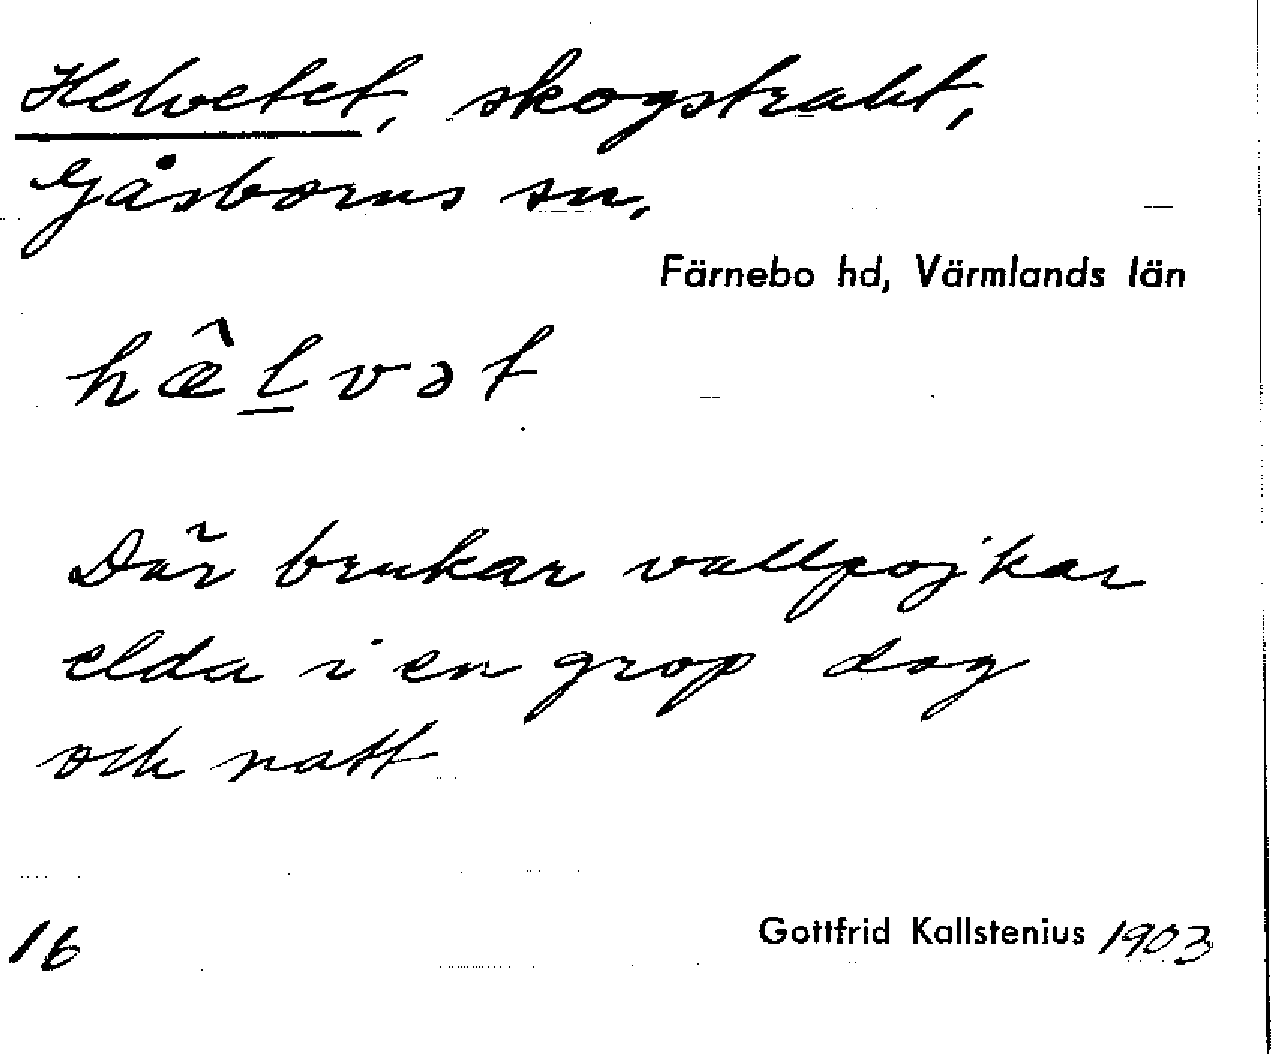 Helvetet, skogstrakt,
Gåsborns sn,
Färnebo hd, Värmlands län
hæ̂l̲vət
Där brukar vallpojkar
elda i en grop dag
och natt
16
Gottfrid Kallstenius 1903